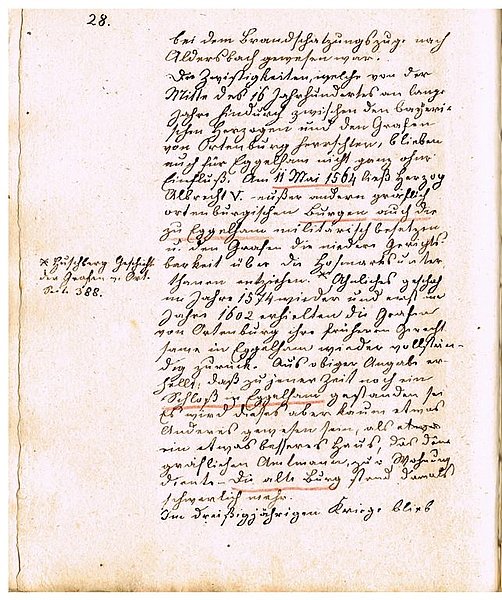 28.
bei dem Brandschatzungszuge nach
Aldersbach gewesen war.
Die Zwistigkeiten, welche von der
Mitte des 16 Jahrhundertes an lange
Jahre hindurch zwischen den bayeri-
schen Herzogen und den Grafen
von Ortenburg herrschten, blieben
auch für Eggelham nicht ganz ohne
Einfluß. Am 11 Mai 1564 ließ Herzog
Albrecht V. außer andern gräflich
ortenburgischen Burgen auch die
zu Eggelham militärisch besetzen
u. den Grafen die niedere Gerichts-
barkeit über die Hofmarksunter
thanen entziehen. x Ähnliches geschah
im Jahre 1574 wieder und erst im
Jahre 1602 erhielten die Grafen
von Ortenburg ihre früheren Gerecht
same in Eggelham wieder vollstän-
dig zurück. Aus obiger Angabe er-
hellt, daß zu jener Zeit noch ein
Schloß in Eggelham gestanden sei
es wird dieses aber kaum etwas
Anderes gewesen sein, als etwa
ein etwas besseres Haus, das dem
gräflichen Amtmann zur Wohnung
diente. Die alte Burg stand damals
schwerlich mehr.
Im dreißigjährigen Kriege blieb
x Huschberg Geschichte
der Grafen v. Ort.
Seite 388.